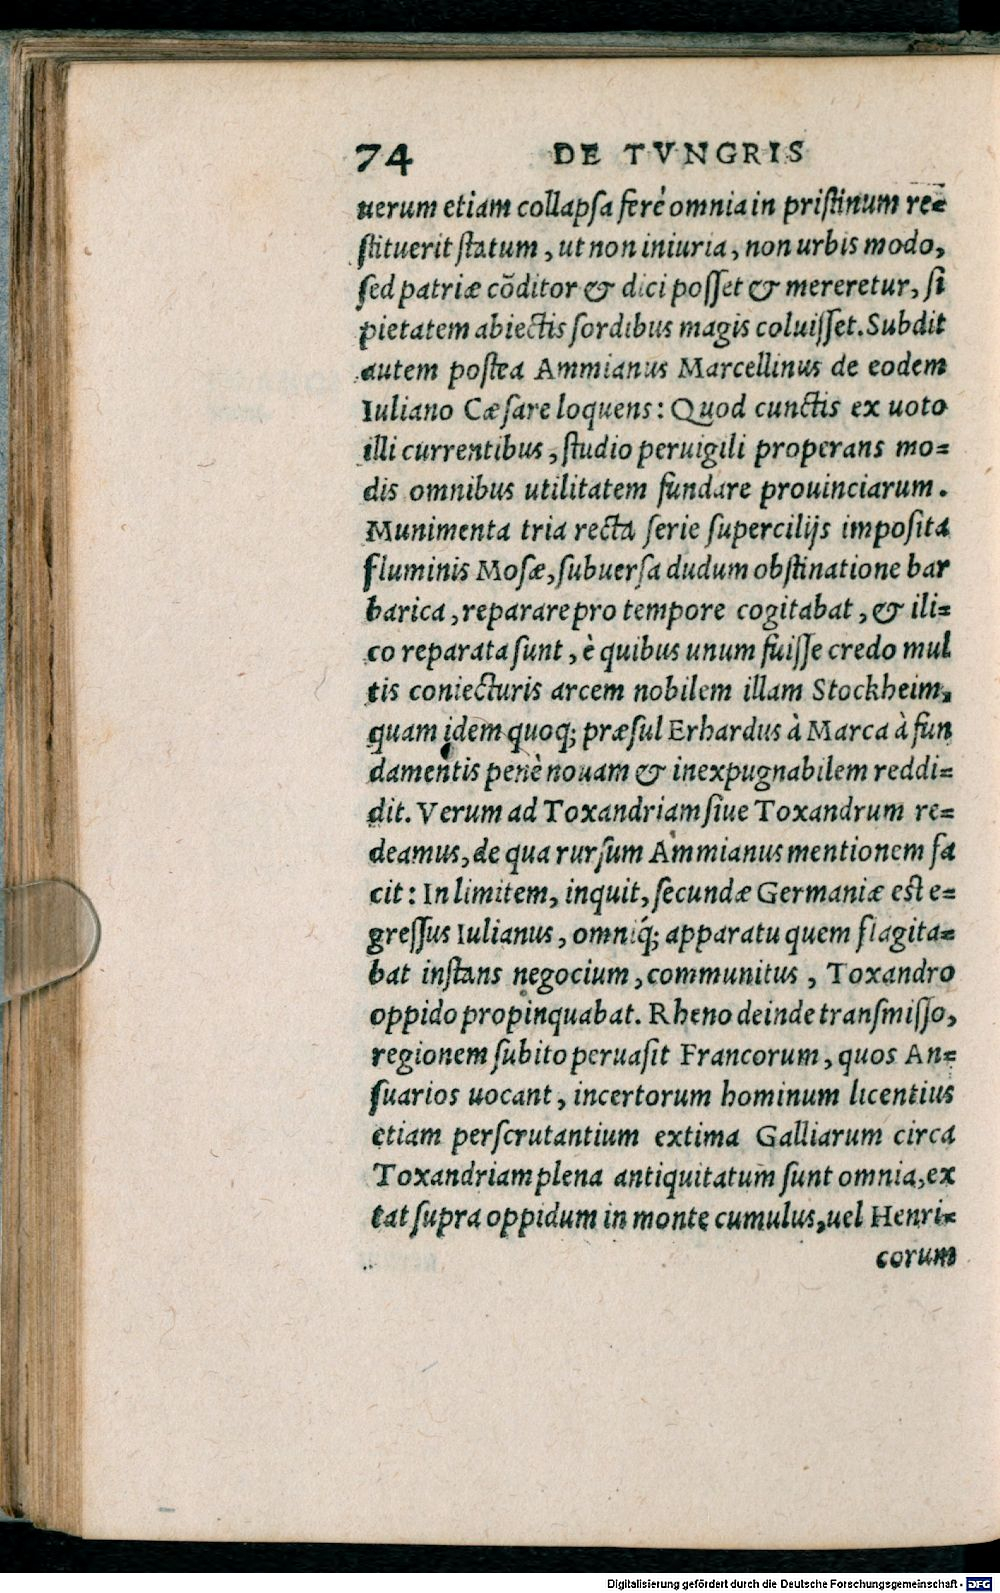 74 DE TVNGRIS
uerum etiam collapsa ferè omnia in pristinum re=
stituerit statum, ut non iniuria, non urbis modo,
sed patriæ cõditor & dici posset & mereretur, si
pietatem abiectis sordibus magis coluisset. Subdit
autem postea Ammianus Marcellinus de eodem
Iuliano Cæsare loquens: Quod cunctis ex uoto
illi currentibus, studio peruigili properans mo=
dis omnibus utilitatem fundare prouinciarum.
Munimenta tria recta serie supercilijs imposita
fluminis Mosæ, subuersa dudum obstinatione bar
barica, reparare pro tempore cogitabat, & ili=
co reparata sunt, è quibus unum fuisse credo mul
tis coniecturis arcem nobilem illam Stockheim,
quam idem quoq; præsul Erhardus à Marca à fun
damentis penè nouam & inexpugnabilem reddi=
dit. Verum ad Toxandriam siue Toxandrum re=
deamus, de qua rursum Ammianus mentionem fa
cit: In limitem, inquit, secundæ Germaniæ est e=
gressus Iulianus, omniq́; apparatu quem flagita=
bat instans negocium, communitus, Toxandro
oppido propinquabat. Rheno deinde transmisso,
regionem subito peruasit Francorum, quos An=
suarios uocant, incertorum hominum licentius
etiam perscrutantium extima Galliarum circa
Toxandriam plena antiquitatum sunt omnia, ex
tat supra oppidum in monte cumulus, uel Henri=
corum
Digitalisierung gefördert durch die Deutsche Forschungsgemeinschaft - DFG